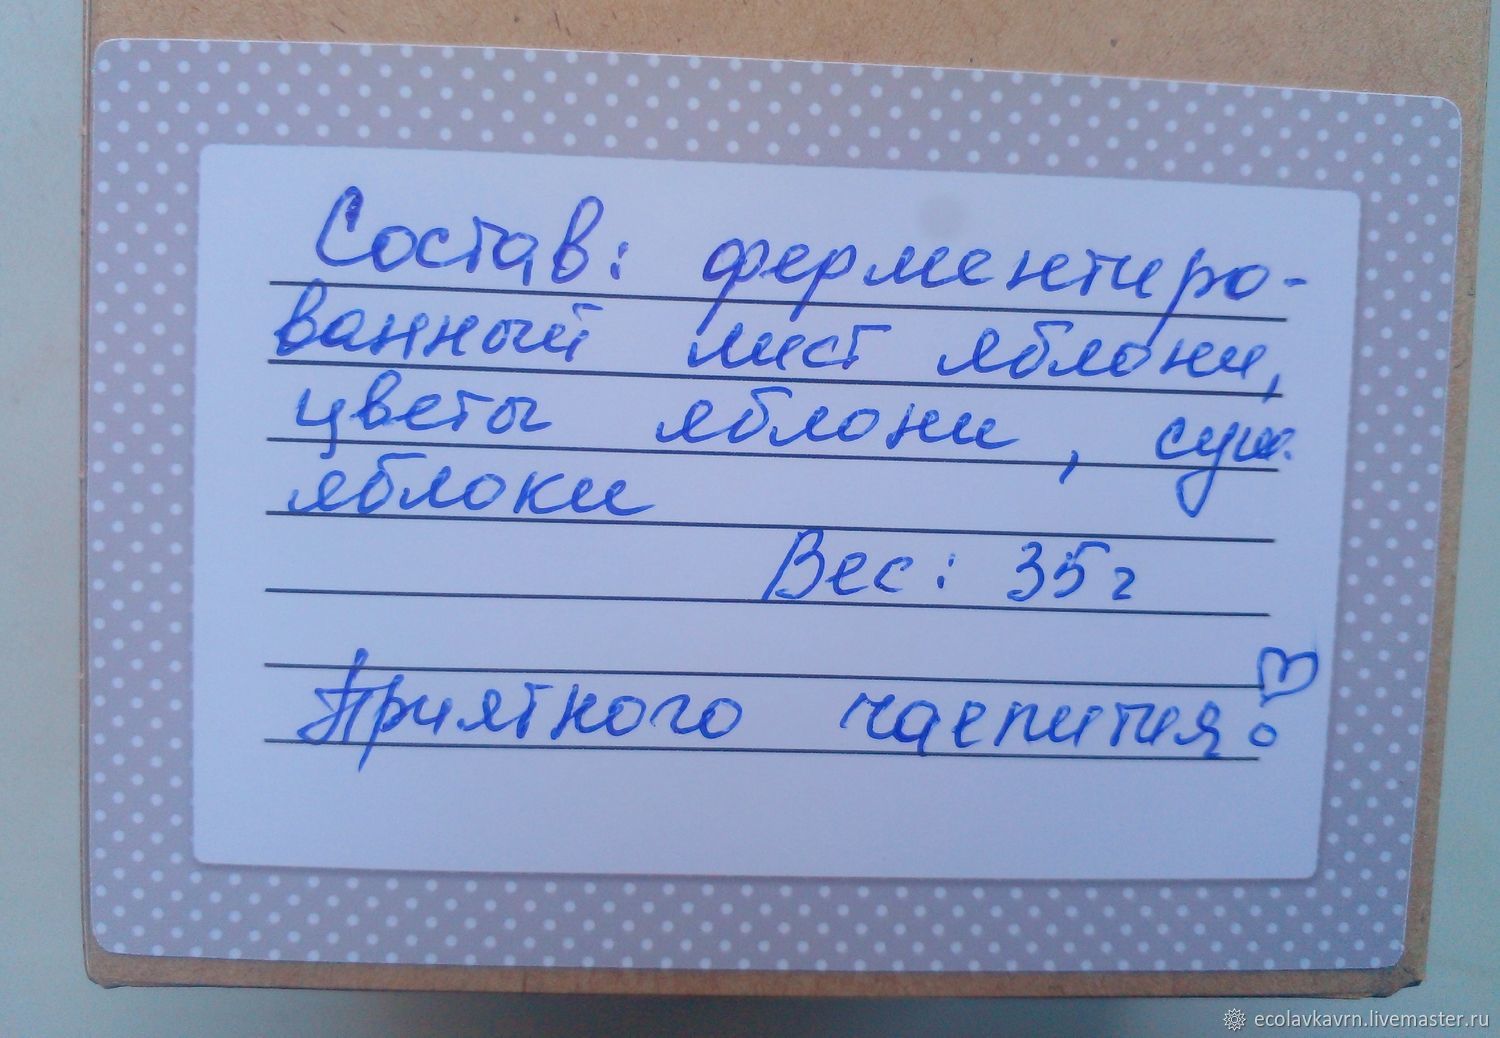 Состав: ферментиро-
ванный лист яблони,
цветы яблони, суш.
яблоки
Вес: 35г
Приятного чаепития!
ecolavkavrn.livemaster.ru